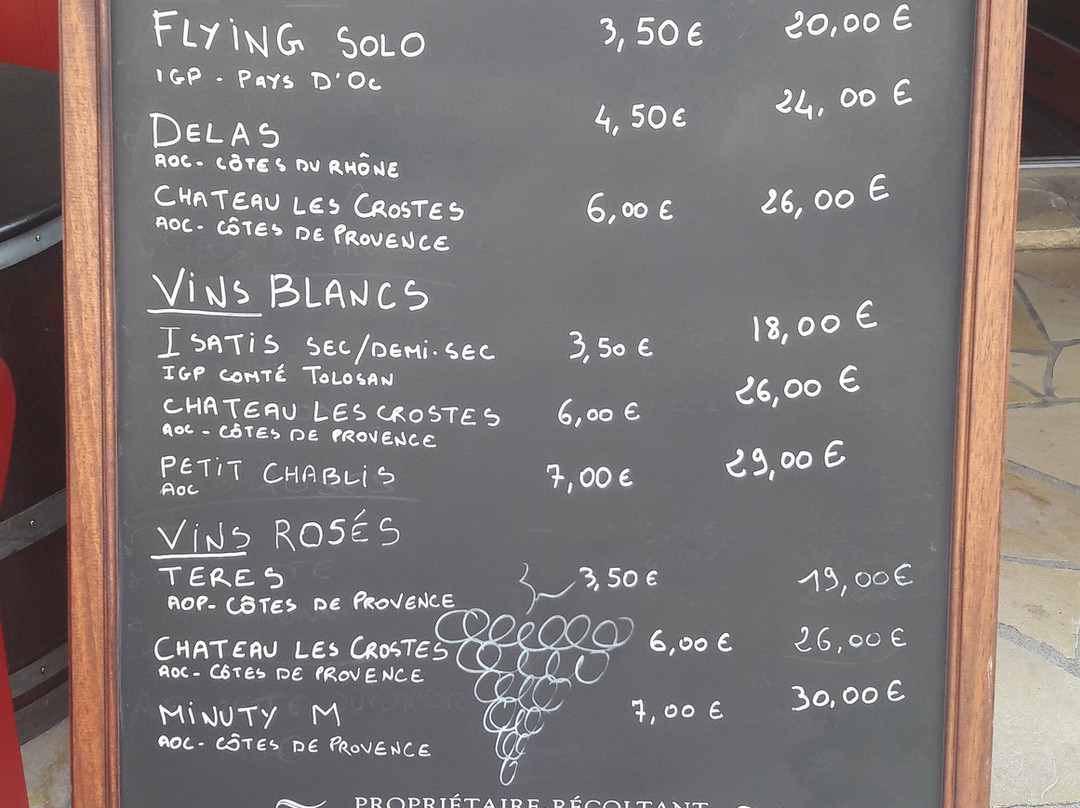 FLYING SOLO 3,50 € 20,00 €
IGP - PAYS D'OC
DELAS 4,50 € 24,00 €
AOC - CÔTES DU RHÔNE
CHATEAU LES CROSTES 6,00 € 26,00 €
AOC - CÔTES DE PROVENCE
VINS BLANCS
ISATIS SEC/DEMI-SEC 3,50 € 18,00 €
IGP COMTÉ TOLOSAN
CHATEAU LES CROSTES 6,00 € 26,00 €
AOC - CÔTES DE PROVENCE
PETIT CHABLIS 7,00 € 29,00 €
AOC
VINS ROSÉS
TERES 3,50 € 19,00 €
AOP - CÔTES DE PROVENCE
CHATEAU LES CROSTES 6,00 € 26,00 €
AOC - CÔTES DE PROVENCE
MINUTY M 7,00 € 30,00 €
AOC - CÔTES DE PROVENCE
PROPRIÉTAIRE RÉCOLTANT